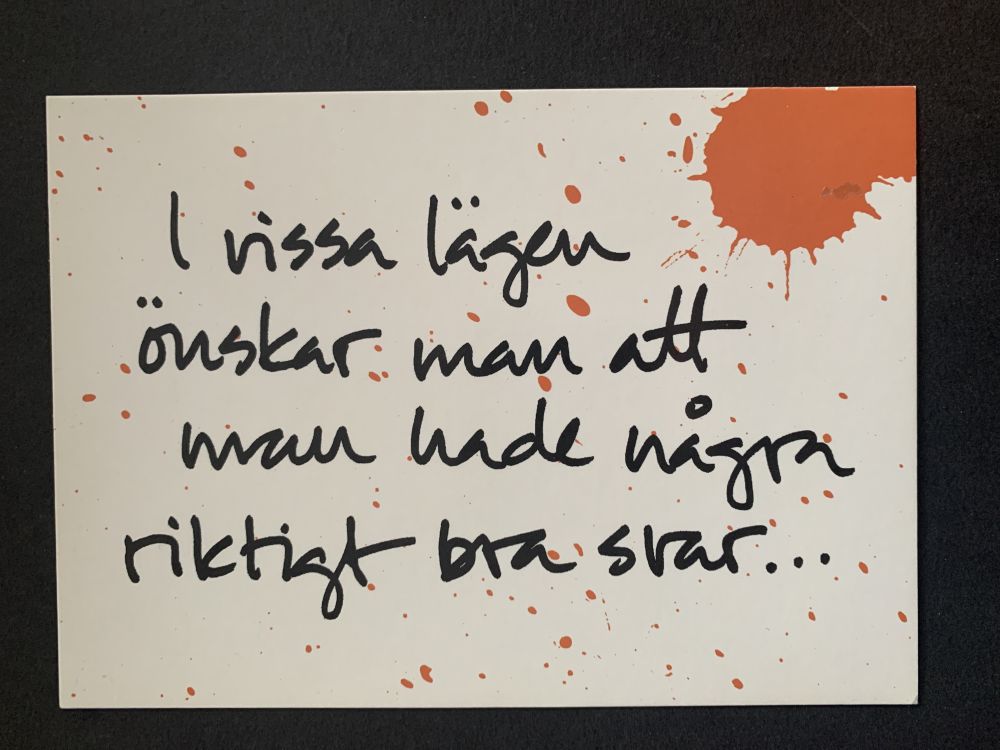 I vissa lägen
önskar man att
man hade några
riktigt bra svar...